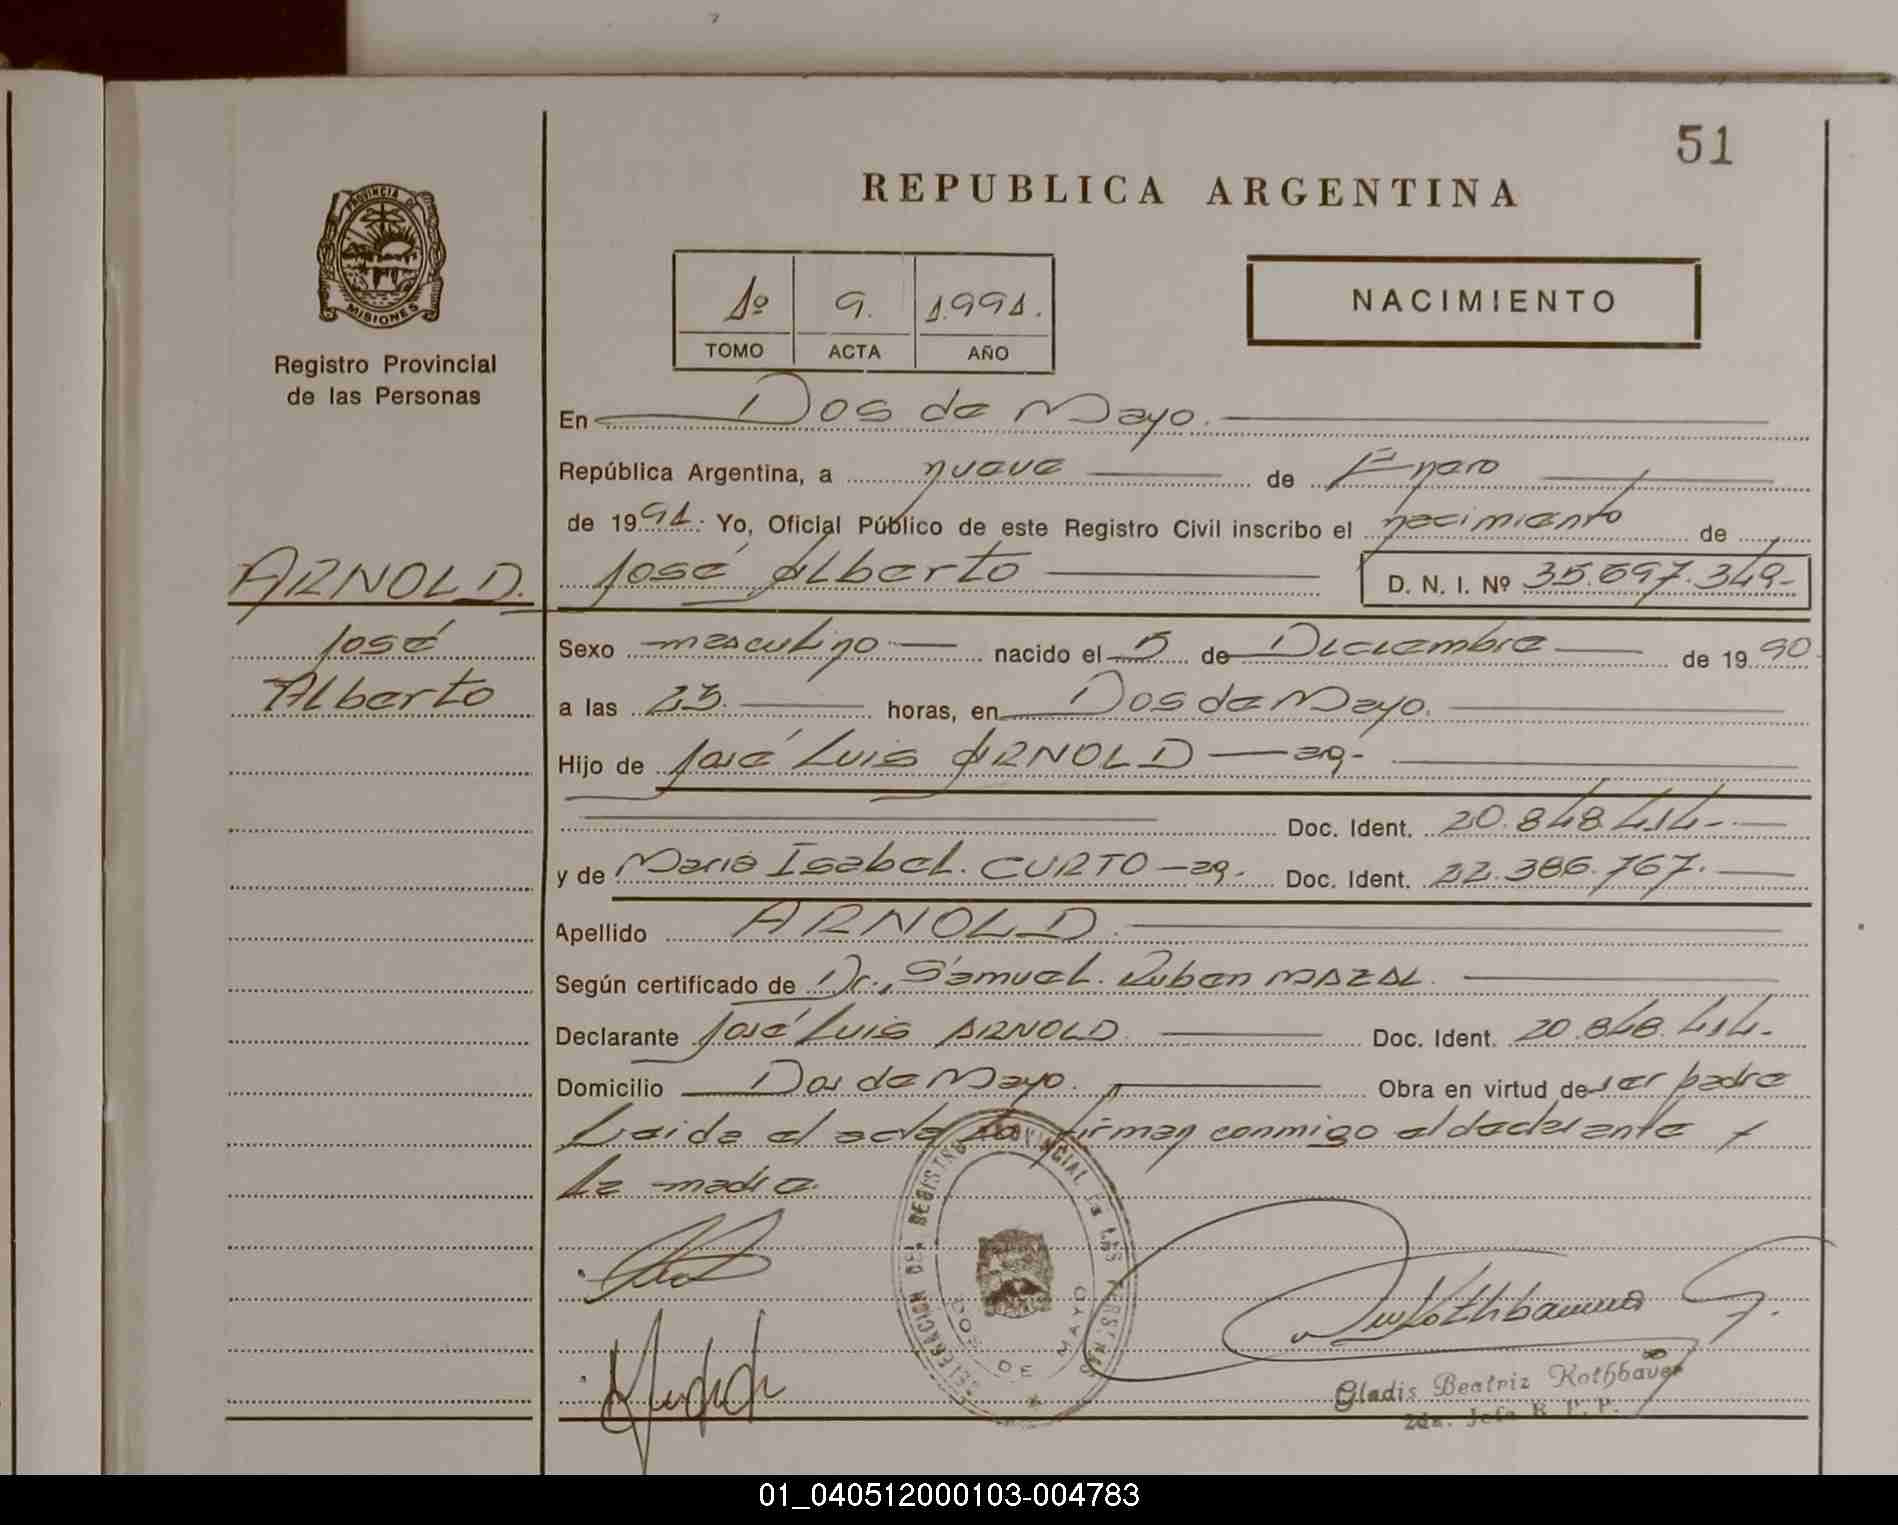 51
REPUBLICA ARGENTINA
PROVINCIA DE
MISIONES
Registro Provincial
de las Personas
1º 9. 1.991.
TOMO ACTA AÑO
NACIMIENTO
En Dos de Mayo.
República Argentina, a nueve de Enero
de 1991. Yo, Oficial Público de este Registro Civil inscribo el nacimiento de
ARNOLD. José Alberto D. N. I. Nº 35.697.349-
José
Alberto
Sexo masculino nacido el 5 de Diciembre de 1990
a las 23. horas, en Dos de Mayo.
Hijo de José Luis ARNOLD — ag-
Doc. Ident. 20.848.414-
y de Maria Isabel. CURTO — ag. Doc. Ident. 22.386.767.
Apellido ARNOLD.
Según certificado de Dr., Samuel. Ruben MAZAL.
Declarante José Luis ARNOLD. Doc. Ident. 20.848.414-
Domicilio Dos de Mayo. Obra en virtud de ser padre
Leida el acta la firman conmigo el declarante y
la madre.
DELEGACION DEL REGISTRO PROVINCIAL DE LAS PERSONAS
DOS DE MAYO
Gladis Beatriz Kothbauer
2da. Jefe R. P. P.
01_040512000103-004783